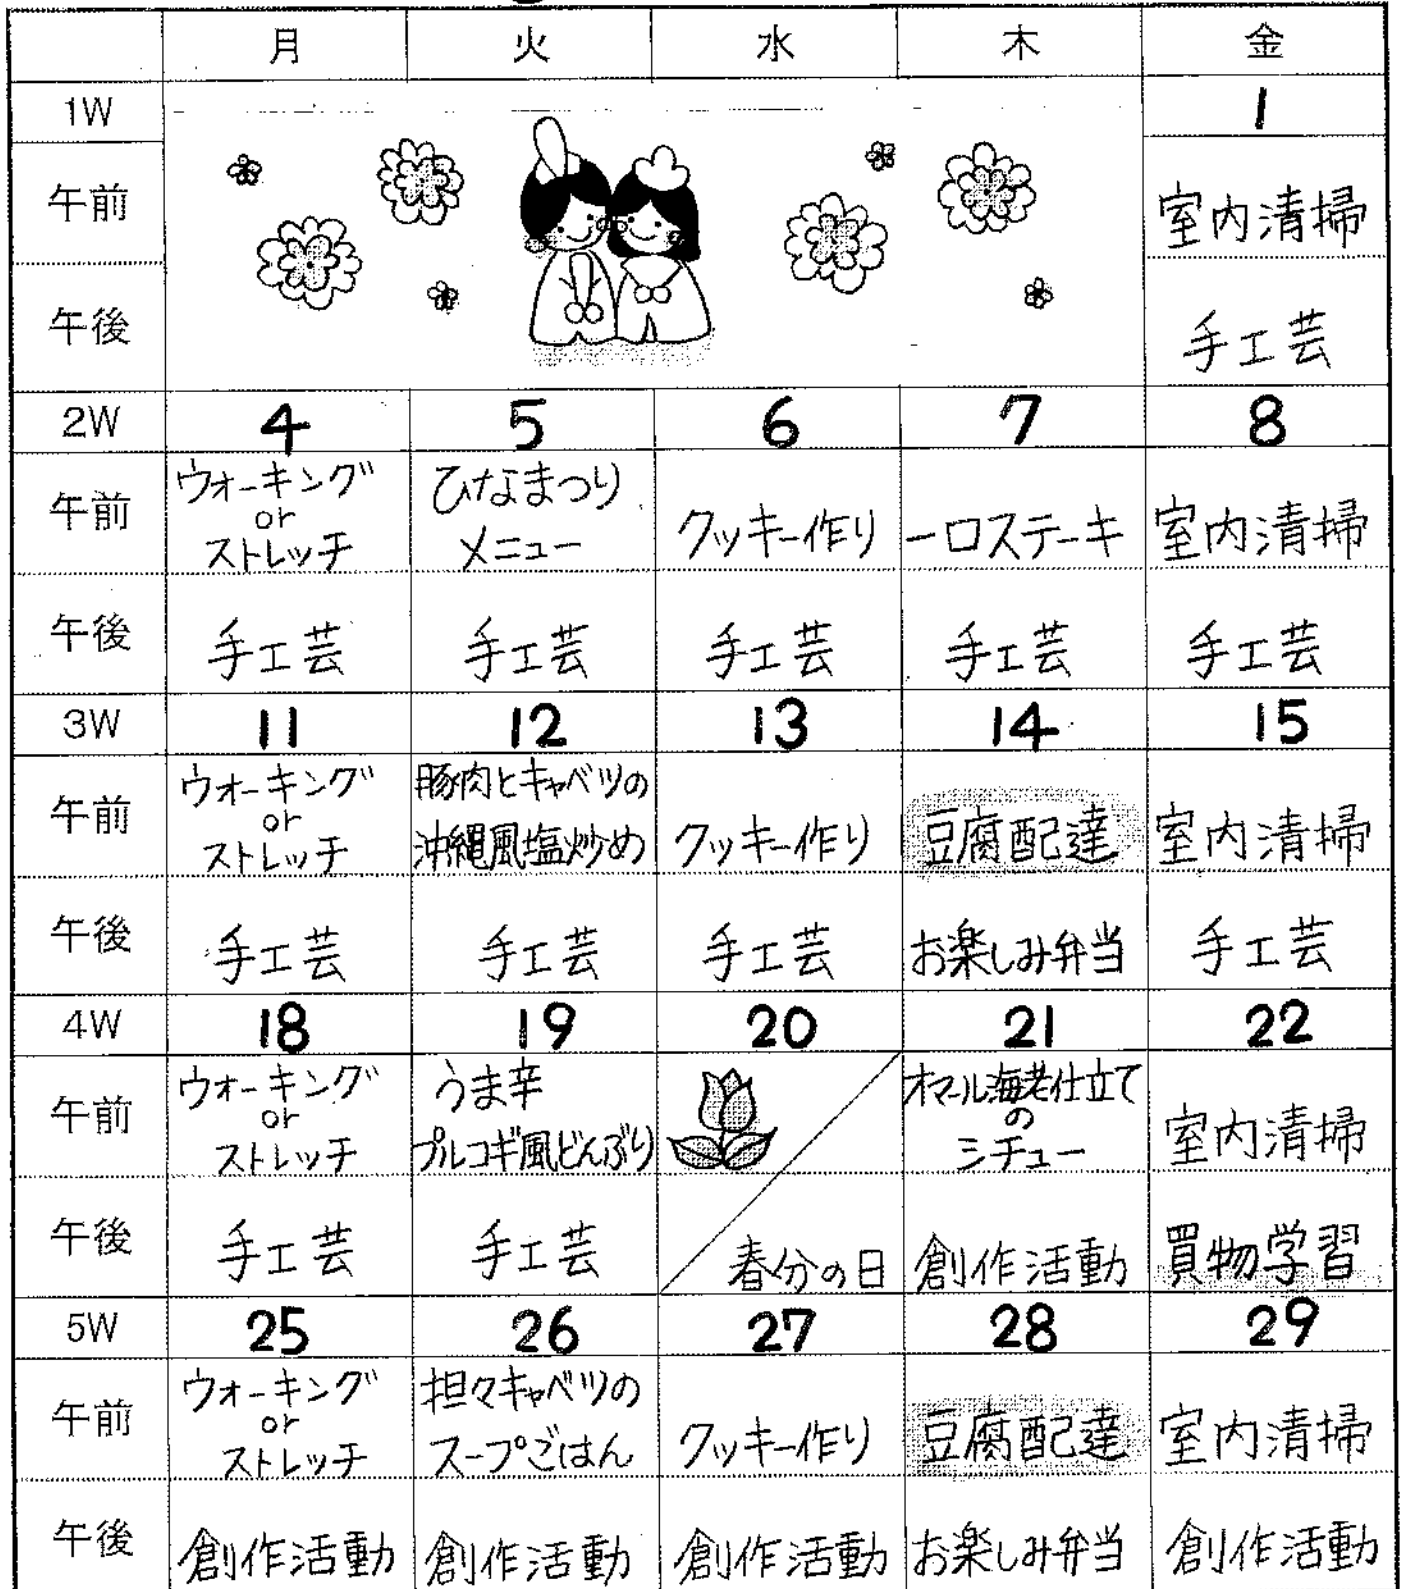 月 火 水 木 金
1W 1
午前 室内清掃
午後 手工芸
2W 4 5 6 7 8
午前 ウォーキング or ストレッチ ひなまつり メニュー クッキー作り 一口ステーキ 室内清掃
午後 手工芸 手工芸 手工芸 手工芸 手工芸
3W 11 12 13 14 15
午前 ウォーキング or ストレッチ 豚肉とキャベツの 沖縄風塩炒め クッキー作り 豆腐配達 室内清掃
午後 手工芸 手工芸 手工芸 お楽しみ弁当 手工芸
4W 18 19 20 21 22
午前 ウォーキング or ストレッチ うま辛 プルコギ風どんぶり オマール海老仕立て の シチュー 室内清掃
午後 手工芸 手工芸 春分の日 創作活動 買物学習
5W 25 26 27 28 29
午前 ウォーキング or ストレッチ 担々キャベツの スープごはん クッキー作り 豆腐配達 室内清掃
午後 創作活動 創作活動 創作活動 お楽しみ弁当 創作活動